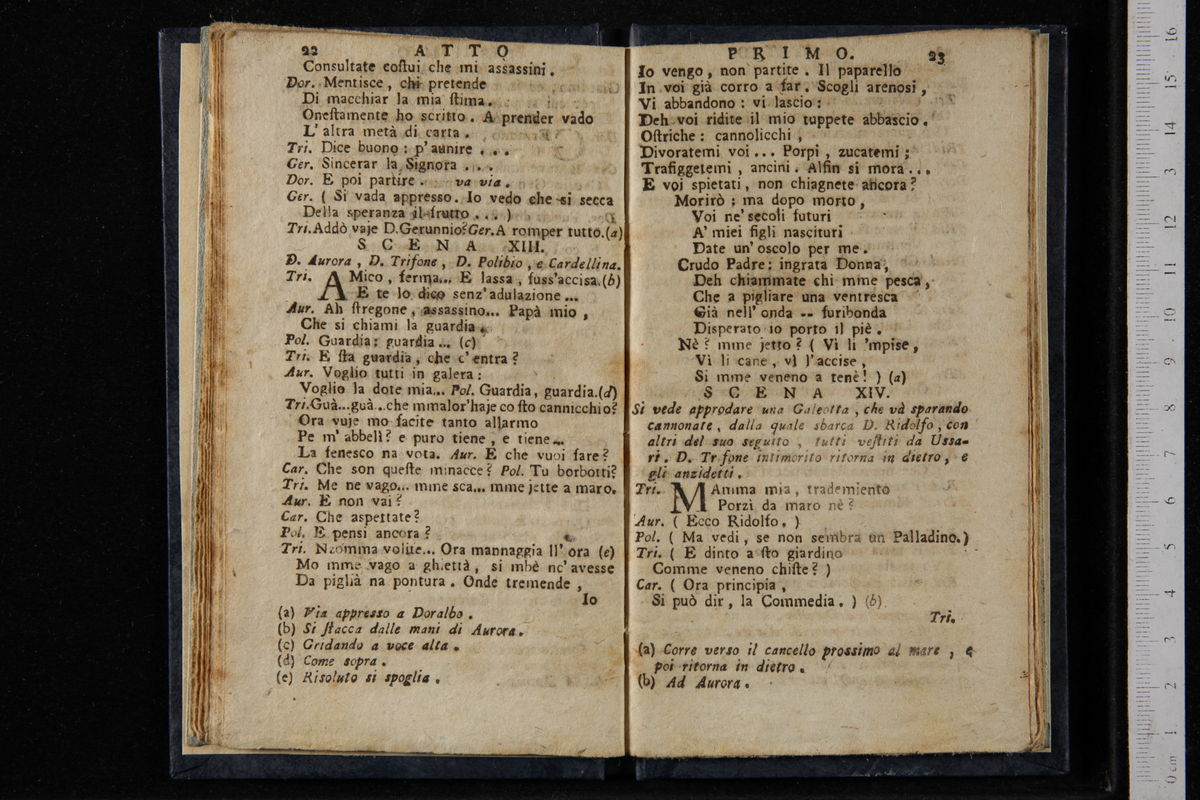 22 ATTO
Consultate coſtui che mi assassini.
Dor. Mentisce, chi pretende
Di macchiar la mia ſtima.
Oneſtamente ho scritto. A prender vado
L'altra metà di carta.
Tri. Dice buono: p'aunire ...
Ger. Sincerar la Signora ...
Dor. E poi partire. va via.
Ger. ( Si vada appresso. Io vedo che si secca
Della speranza il frutto ... )
Tri. Addò vaje D. Gerunnio? Ger. A romper tutto. (a)
SCENA XIII.
D. Aurora, D. Trifone, D. Polibio, e Cardellina.
Tri. AMico, ferma... E lassa, fuss'accisa. (b)
E te lo dico senz'adulazione ...
Aur. Ah ſtregone, assassino... Papà mio,
Che si chiami la guardia.
Pol. Guardia: guardia ... (c)
Tri. E ſta guardia, che c'entra?
Aur. Voglio tutti in galera:
Voglio la dote mia... Pol. Guardia, guardia. (d)
Tri. Guà...guà...che mmalor'haje co ſto cannicchio?
Ora vuje mo facite tanto allarmo
Pe m'abbelì? e puro tiene, e tiene...
La fenesco na vota. Aur. E che vuoi fare?
Car. Che son queſte minacce? Pol. Tu borbotti?
Tri. Me ne vago... mme sca... mme jette a maro.
Aur. E non vai?
Car. Che aspettate?
Pol. E pensi ancora?
Tri. Nzomma volite... Ora mannaggia ll'ora (e)
Mo mme vago a ghiettà, si mbè nc'avesse
Da piglià na pontura. Onde tremende,
Io
(a) Via appresso a Doralbo.
(b) Si ſtacca dalle mani di Aurora.
(c) Gridando a voce alta.
(d) Come sopra.
(e) Risoluto si spoglia.
PRIMO. 23
Io vengo, non partite. Il paparello
In voi già corro a far. Scogli arenosi,
Vi abbandono: vi lascio:
Deh voi ridite il mio tuppete abbascio.
Oſtriche: cannolicchi,
Divoratemi voi ... Porpi, zucatemi;
Trafiggetemi, ancini. Alfin si mora ...
E voi spietati, non chiagnete ancora?
Morirò; ma dopo morto,
Voi ne' secoli futuri
A' miei figli nascituri
Date un'oscolo per me.
Crudo Padre: ingrata Donna,
Deh chiammate chi mme pesca,
Che a pigliare una ventresca
Già nell'onda -- furibonda
Disperato io porto il piè.
Nè? mme jetto? ( Vi lì 'mpise,
Vi li cane, vì l'accise,
Si mme veneno a tenè! ) (a)
SCENA XIV.
Si vede approdare una Galeotta, che và sparando
cannonate, dalla quale sbarca D. Ridolfo, con
altri del suo seguito, tutti veſtiti da Ussa-
ri. D. Trifone intimorito ritorna in dietro, e
gli anzidetti.
Tri. MAmma mia, trademiento
Porzì da maro nè?
Aur. ( Ecco Ridolfo. )
Pol. ( Ma vedi, se non sembra un Palladino. )
Tri. ( E dinto a ſto giardino
Comme veneno chiſte? )
Car. ( Ora principia,
Si può dir, la Commedia. ) (b)
Tri.
(a) Corre verso il cancello prossimo al mare, e
poi ritorna in dietro.
(b) Ad Aurora.
0 cm 1 2 3 4 5 6 7 8 9 10 11 12 13 14 15 16